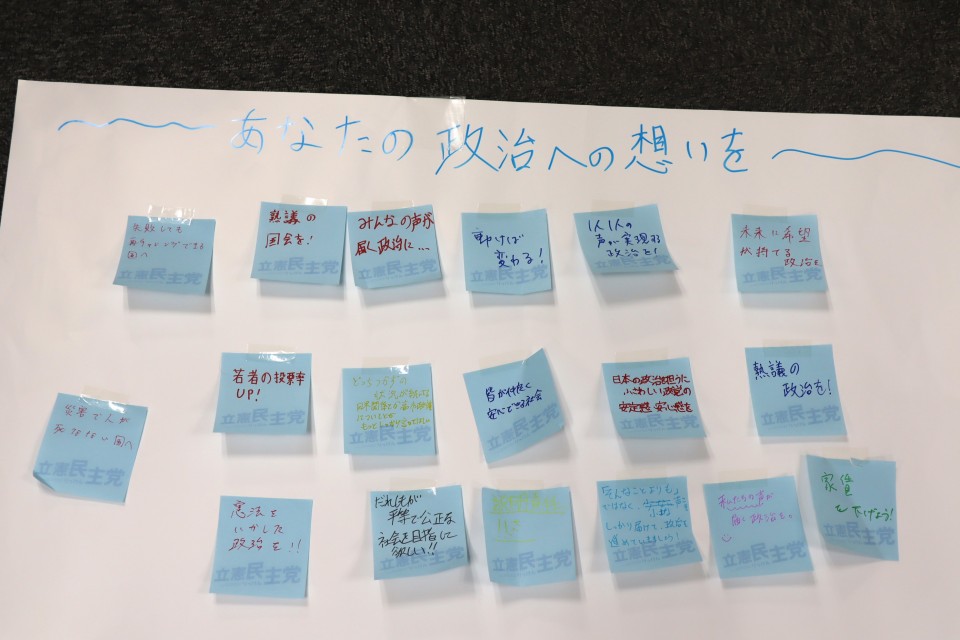 あなたの政治への想いを
失敗しても
再チャレンジできる
国へ
立憲民主党
熟議の
国会を!
立憲民主党
みんなの声が
届く政治に…
立憲民主党
動けば
変わる!
立憲民主党
1人1人の
声が実現する
政治を!
立憲民主党
未来に希望
が持てる
政治を
立憲民主党
災害で人が
死なない国へ
立憲民主党
若者の投票率
UP!
立憲民主党
立憲民主党
皆が仲良く
安心できる社会
立憲民主党
日本の政治を担うに
ふさわしい政党の
安定感 安心感を
立憲民主党
熟議の
政治を!
立憲民主党
憲法を
いかした
政治を!!
立憲民主党
だれもが
平等で公正な
社会を目指して
欲しい!!
立憲民主党
立憲民主党
「そんなことよりも」
ではなく、
しっかり届けて、政治を
進めてもらいたい!
立憲民主党
私たちの声が
届く政治を。
立憲民主党
家賃
を下げよう!
立憲民主党